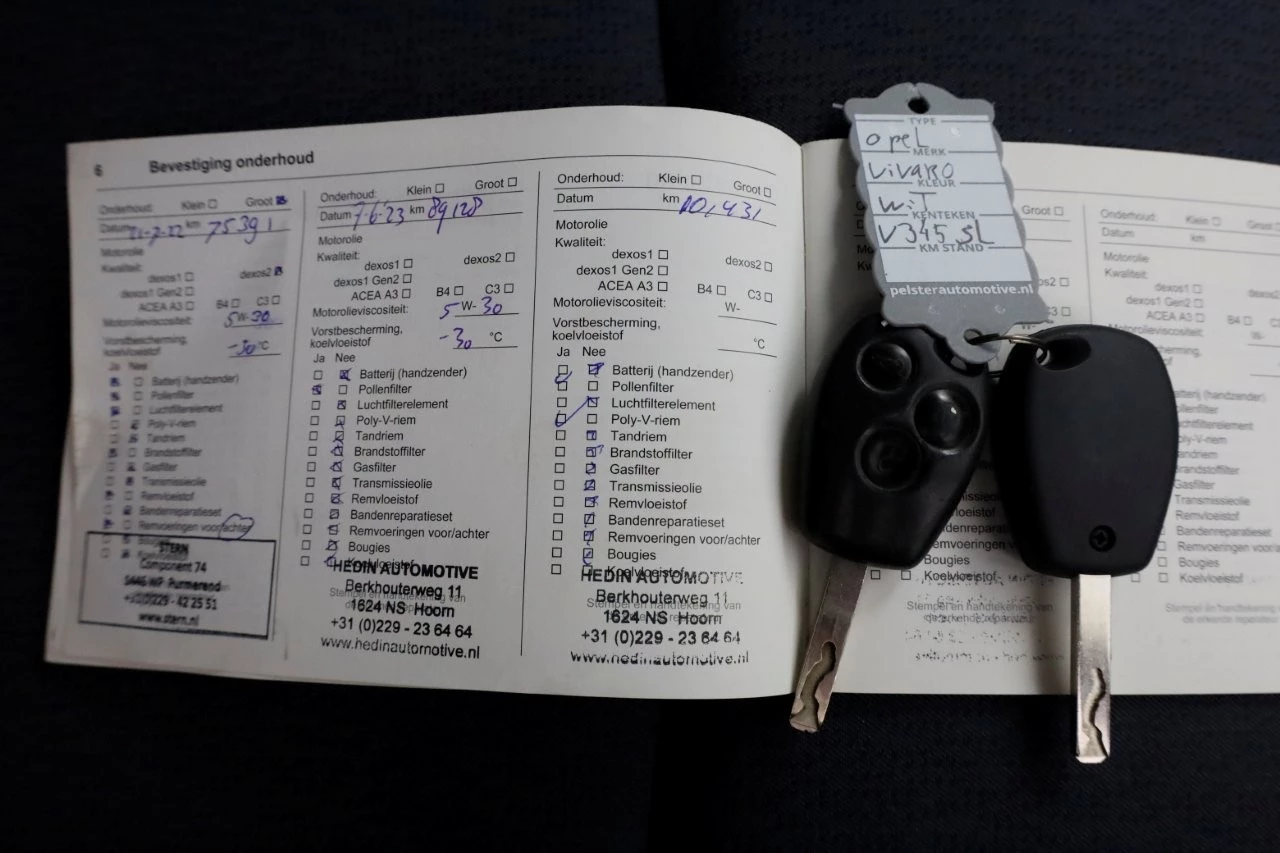 6 Bevestiging onderhoud
Onderhoud: Klein Groot
Datum 21-7-22 km 75391
Motorolie
Kwaliteit:
dexos1 dexos2
dexos1 Gen2
ACEA A3 B4 C3
Motorolieviscositeit: 5W-30
Vorstbescherming,
koelvloeistof -30 °C
Ja Nee
Batterij (handzender)
Pollenfilter
Luchtfilterelement
Poly-V-riem
Tandriem
Brandstoffilter
Gasfilter
Transmissieolie
Remvloeistof
Bandenreparatieset
Remvoeringen voor/achter
STERN
Component 74
Purmerend
www.stern.nl
Onderhoud: Klein Groot
Datum 7-6-23 km 89128
Motorolie
Kwaliteit:
dexos1 dexos2
dexos1 Gen2
ACEA A3 B4 C3
Motorolieviscositeit: 5W-30
Vorstbescherming,
koelvloeistof -30 °C
Ja Nee
Batterij (handzender)
Pollenfilter
Luchtfilterelement
Poly-V-riem
Tandriem
Brandstoffilter
Gasfilter
Transmissieolie
Remvloeistof
Bandenreparatieset
Remvoeringen voor/achter
Bougies
HEDIN AUTOMOTIVE
Berkhouterweg 11
1624 NS Hoorn
+31 (0)229 - 23 64 64
www.hedinautomotive.nl
Onderhoud: Klein Groot
Datum km 101,431
Motorolie
Kwaliteit:
dexos1 dexos2
dexos1 Gen2
ACEA A3 B4 C3
Motorolieviscositeit: W-
Vorstbescherming,
koelvloeistof °C
Ja Nee
Batterij (handzender)
Pollenfilter
Luchtfilterelement
Poly-V-riem
Tandriem
Brandstoffilter
Gasfilter
Transmissieolie
Remvloeistof
Bandenreparatieset
Remvoeringen voor/achter
Bougies
Koelvloeistof
HEDIN AUTOMOTIVE
Berkhouterweg 11
1624 NS Hoorn
+31 (0)229 - 23 64 64
www.hedinautomotive.nl
TYPE
opel
MERK
Vivaro
KLEUR
WiT
KENTEKEN
V345SL
KM STAND
pelsterautomotive.nl
Groot
Bougies
Koelvloeistof
Stempel en handtekening van
de erkende reparateur
Onderhoud: Klein Groot
Datum km
Motorolie
Kwaliteit:
dexos1
dexos1 Gen2
ACEA A3 B4
Transmissieolie
Remvloeistof
Bandenreparatieset
Remvoeringen
Bougies
Koelvloeistof
Stempel en handtekening
de erkende reparateur